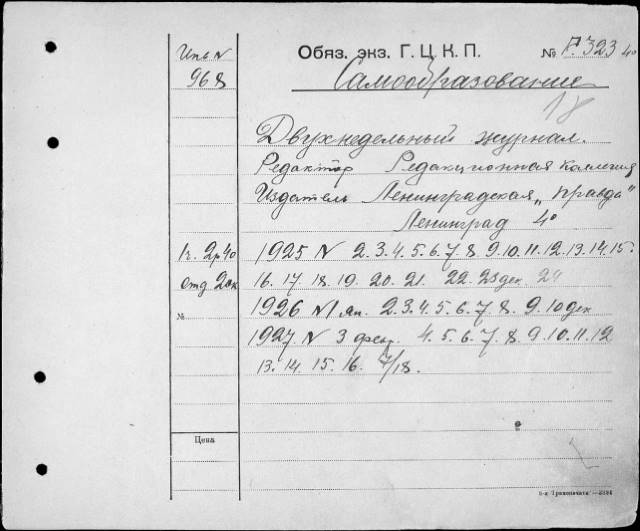 Инв N
968
Обяз. экз. Г. Ц. К. П.
№ 323 4°
Самообразование
18
Двухнедельный журнал.
Редактор Редакционная Коллегия
Издатель Ленинградская „Правда"
Ленинград 4°
1925 N 2.3.4.5.6.7.8.9.10.11.12.13.14.15.
16.17.18.19.20.21. 22.23 дек. 24
1926 N 1 ян. 2.3.4.5.6.7.8. 9.10 дек
№
1927 N 3 февр. 4.5.6.7.8.9.10.11.12
13.14.15.16. 17/18.
Цена